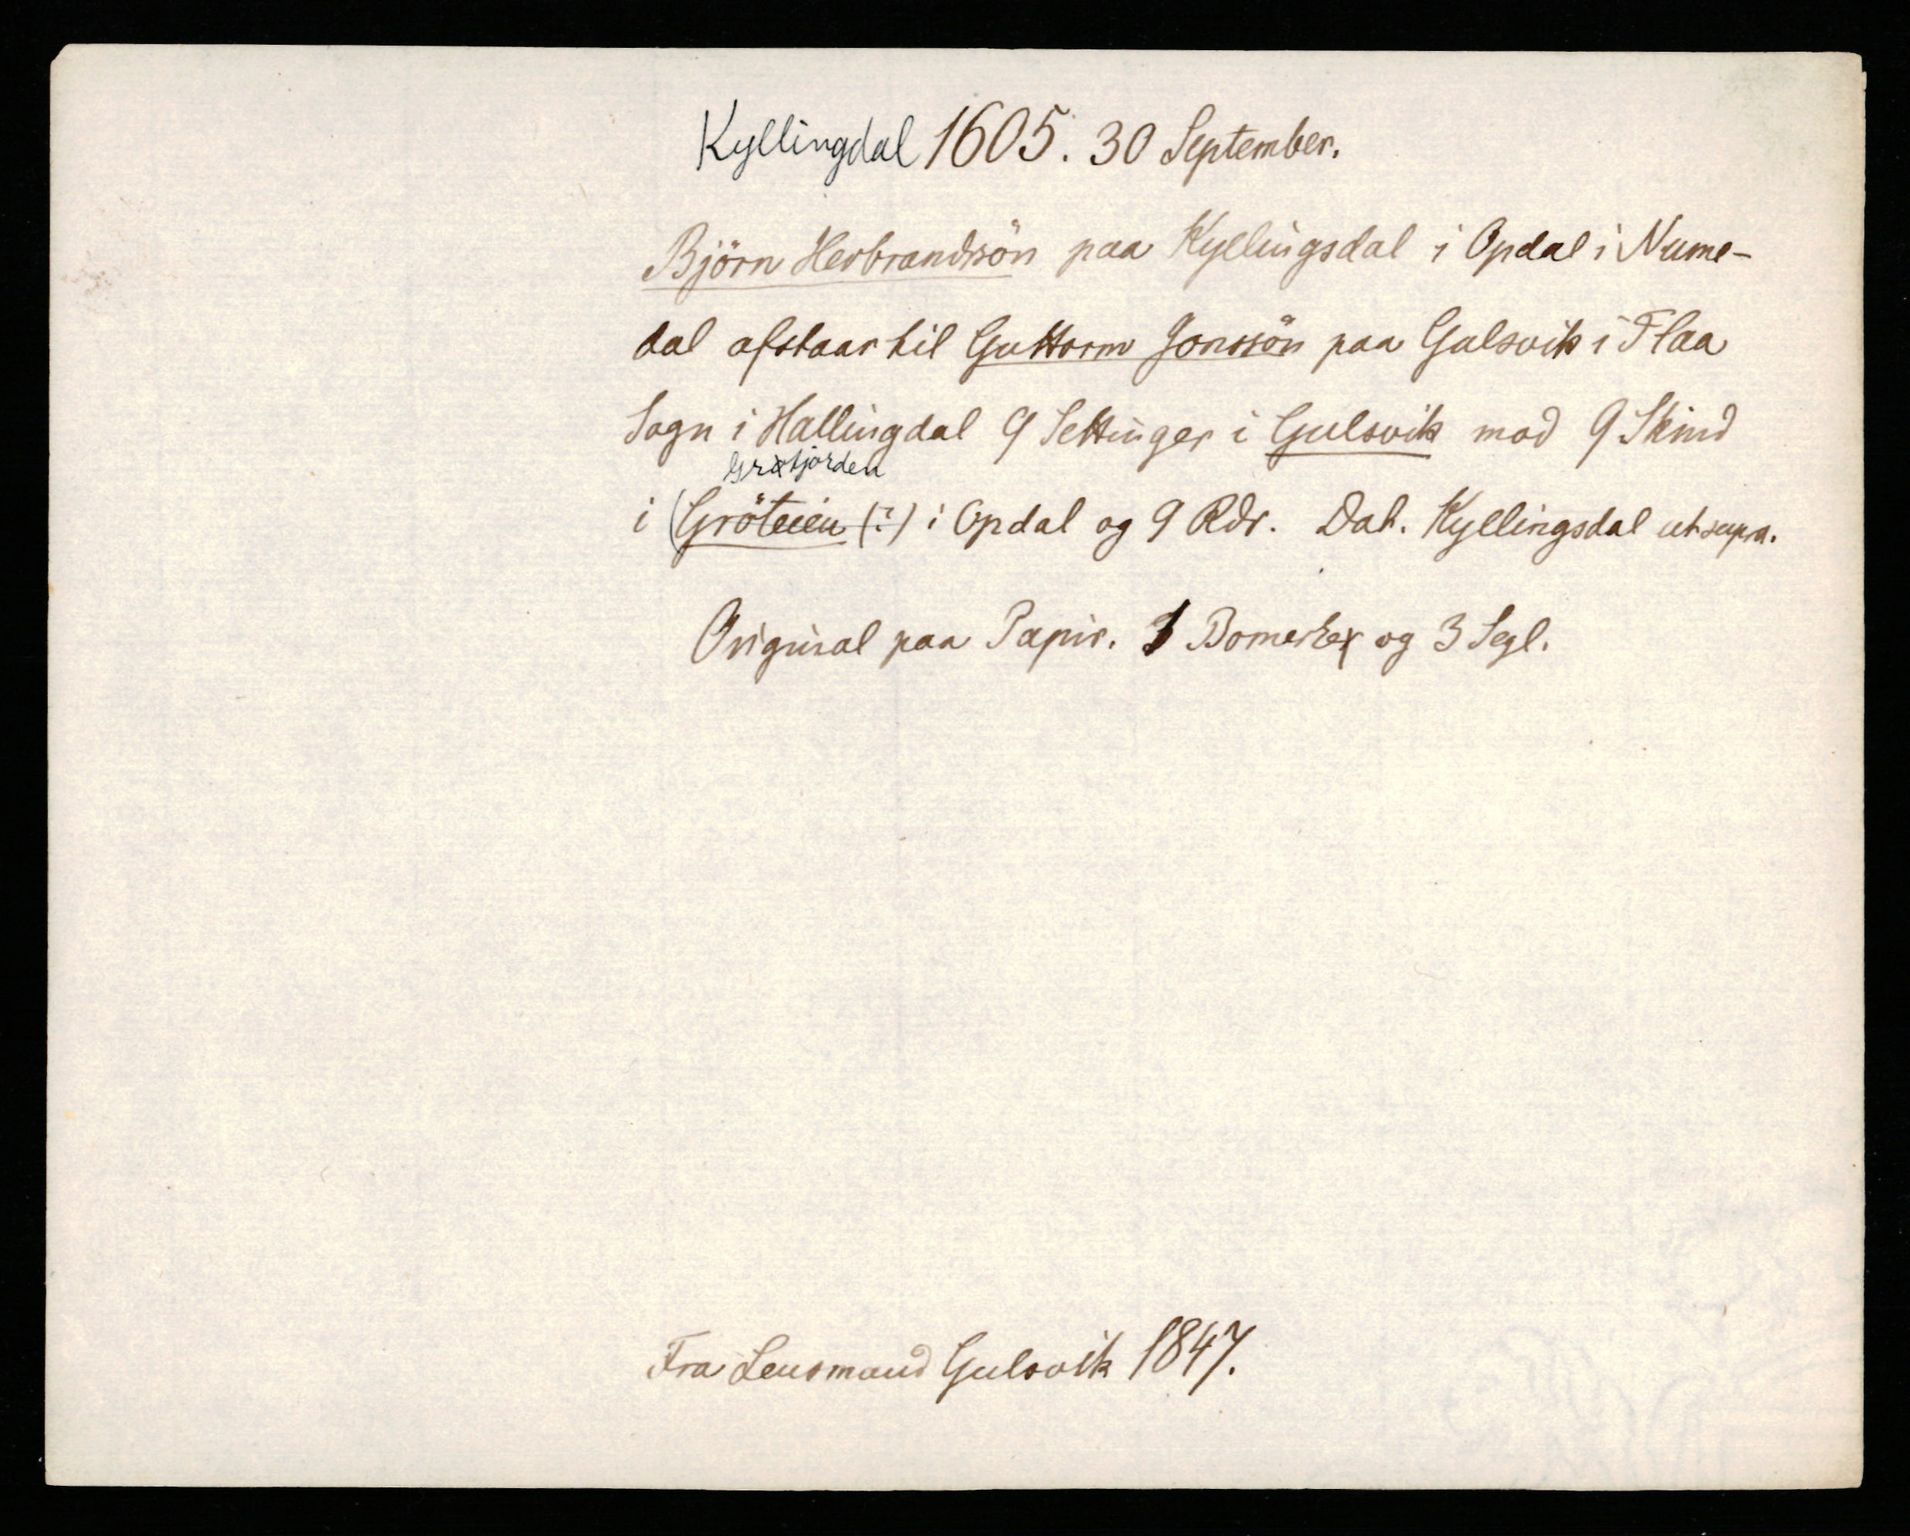 Kyllingdal 1605. 30 September.
Björn Herbrandsön paa Kyllingsdal i Opdal i Nume-
dal afstaar til Guttorm Jonssön paa Gulsvik i Flaa
Sogn i Hallingdal 9 Settinger i Gulsvik mod 9 Skind
Grøtjorden
i (Gröteien (?) i Opdal og 9 Rdr. Dat. Kyllingsdal ut supra.
Original paa Papir. 1 Bomerke og 3 Segl.
Fra Lensmand Gulsvik 1847.